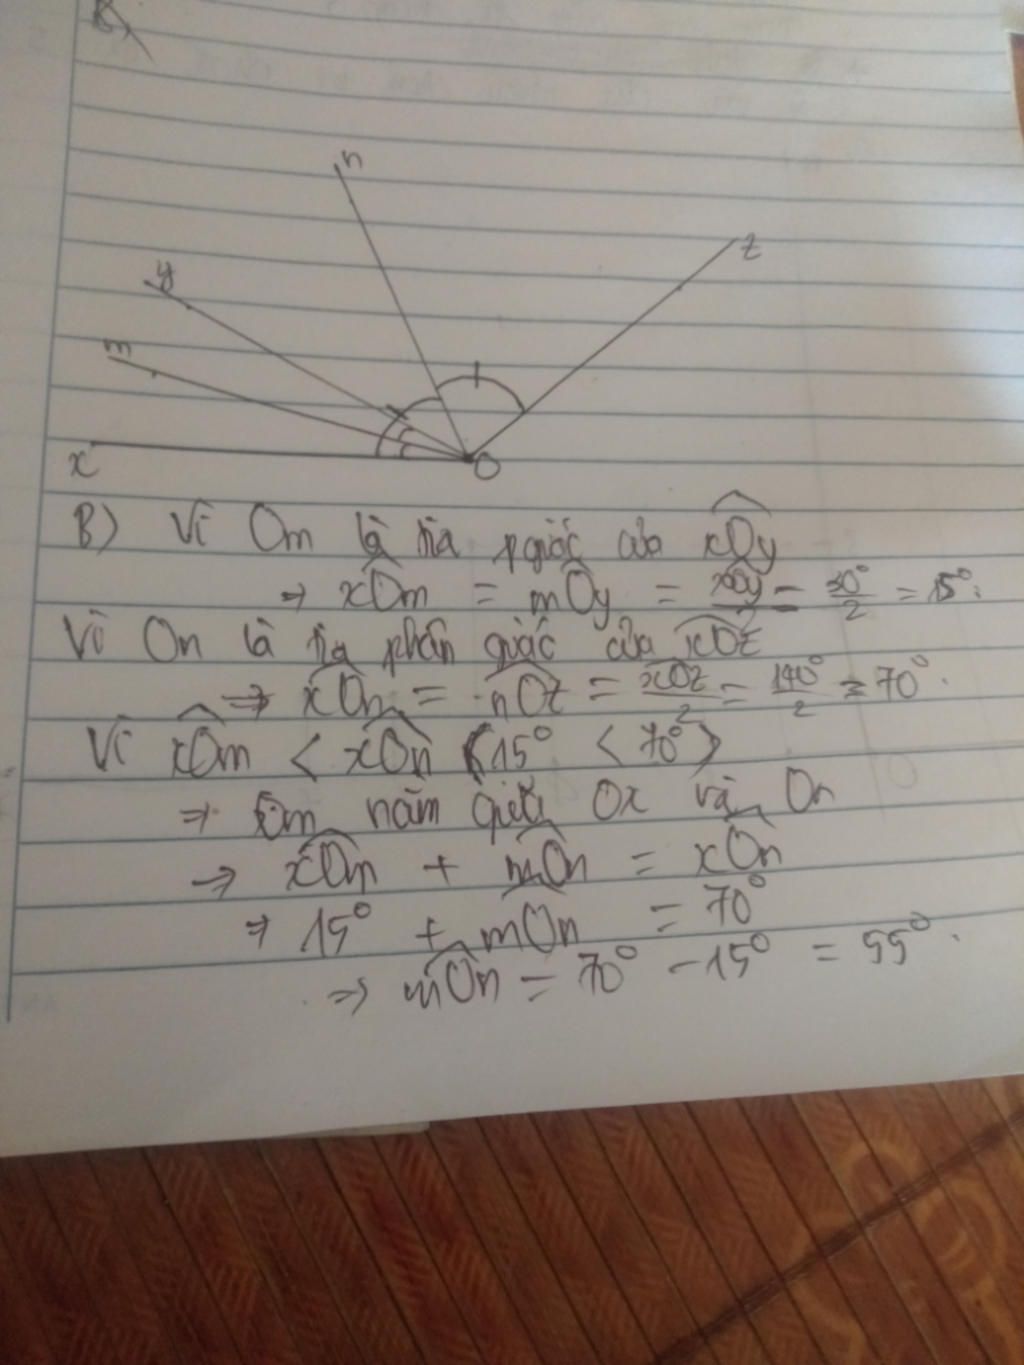 n
z
y
m
x
O
B) Vì Om là tia p giác của xOy
⇒ xOm = mOy = xOy/2 = 30°/2 = 15°.
Vì On là tia phân giác của xOz
⇒ xOn = nOz = xOz/2 = 140°/2 = 70°.
Vì xOm < xOn (15° < 70°)
⇒ Om nằm giữa Ox và On
⇒ xOm + mOn = xOn
⇒ 15° + mOn = 70°
⇒ mOn = 70° - 15° = 55°.